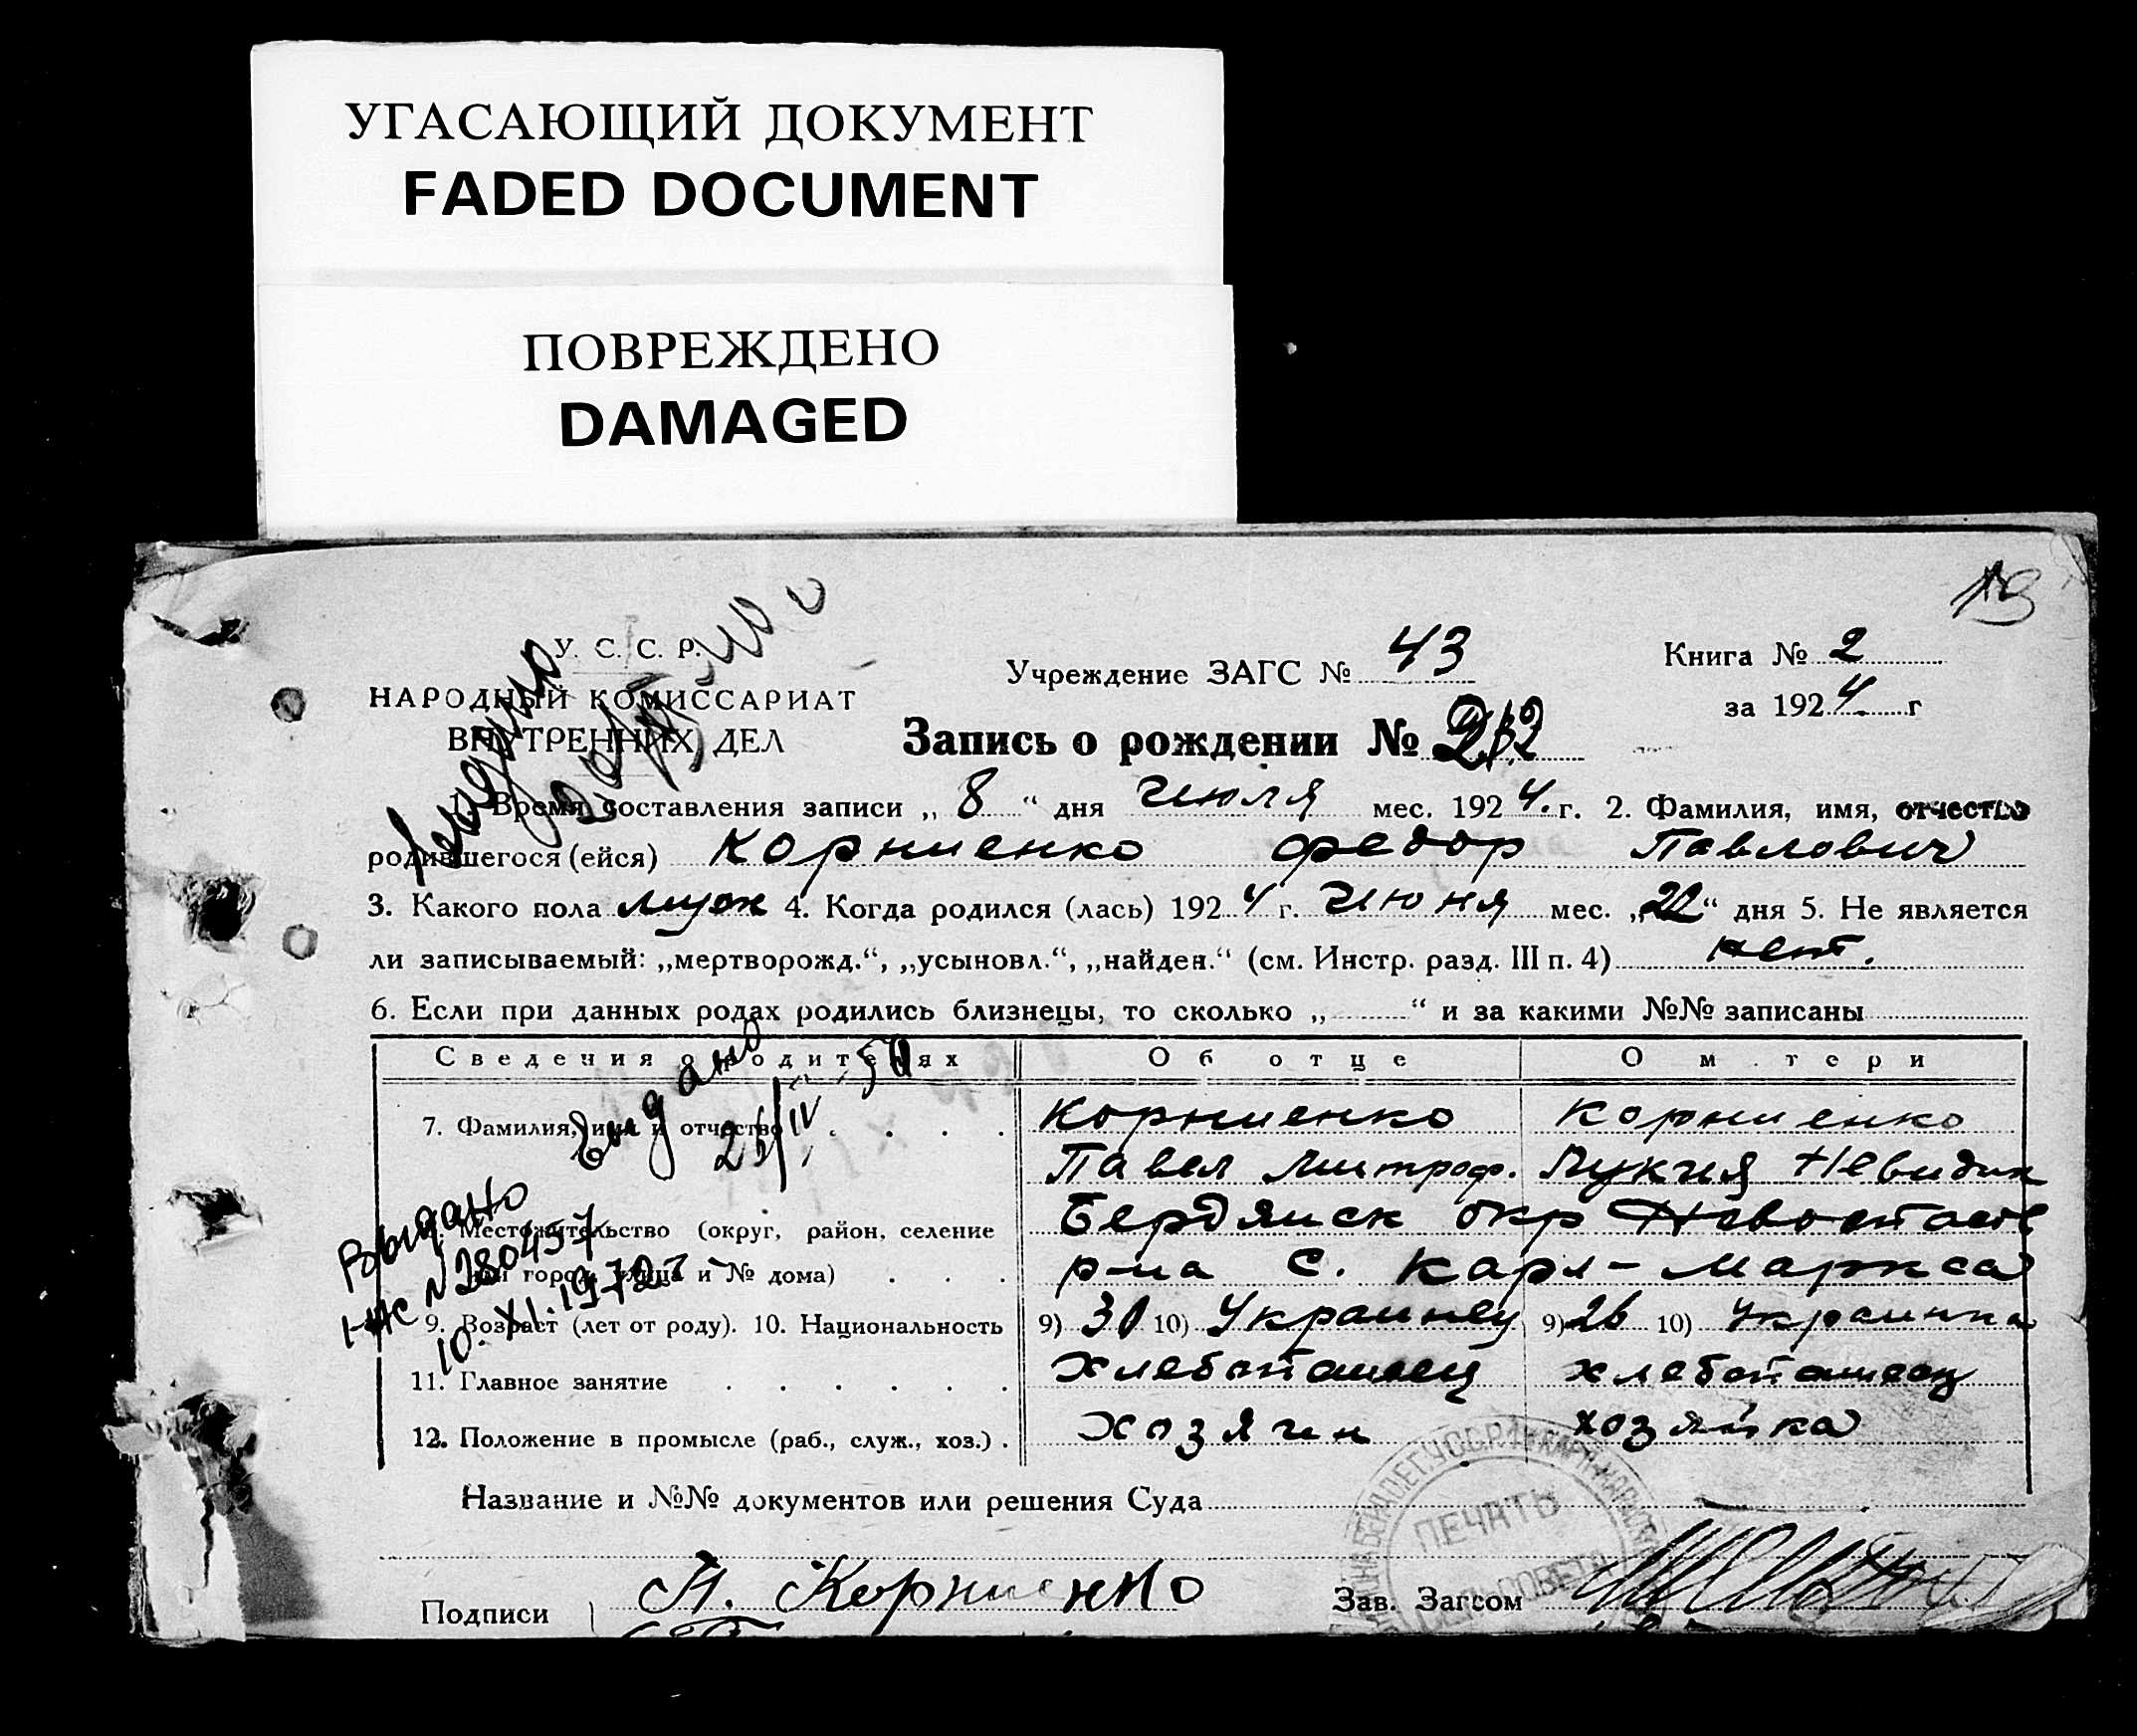 УГАСАЮЩИЙ ДОКУМЕНТ
FADED DOCUMENT
ПОВРЕЖДЕНО
DAMAGED
У. С. С. Р.
НАРОДНЫЙ КОМИССАРИАТ
ВНУТРЕННИХ ДЕЛ
Учреждение ЗАГС № 43
Книга № 2
за 1924. г
Запись о рождении №
1. Время составления записи „ 8 “ дня июля мес. 1924. г. 2. Фамилия, имя, отчество
родившегося (ейся) Корниенко Федор Павлович
3. Какого пола муж 4. Когда родился (лась) 1924 г. июня мес. „22“ дня 5. Не является
ли записываемый: „мертворожд.“, „усыновл.“, „найден.“ (см. Инстр. разд. III п. 4) нет.
6. Если при данных родах родились близнецы, то сколько „ “ и за какими №№ записаны
Сведения о родителях Об отце О м тери
7. Фамилия, имя и отчество Корниенко Корниенко
Павел Митроф. Лукия
Местожительство (округ, район, селение Бердянск окр
город, улица и № дома) р-на С. Карл-Маркса
9. Возраст (лет от роду). 10. Национальность 9) 30 10) Украинец 9) 26 10) Украинка
11. Главное занятие хлебопашец хлебопашец
12. Положение в промысле (раб., служ., хоз.) . хозяин хозяйка
Название и №№ документов или решения Суда
Подписи П. Корниенко Зав. Загсом
Выдано
26/IV 50
Выдано
№ 280457
10. XI. 1972
ПЕЧАТЬ
СЕЛЬСОВЕТА